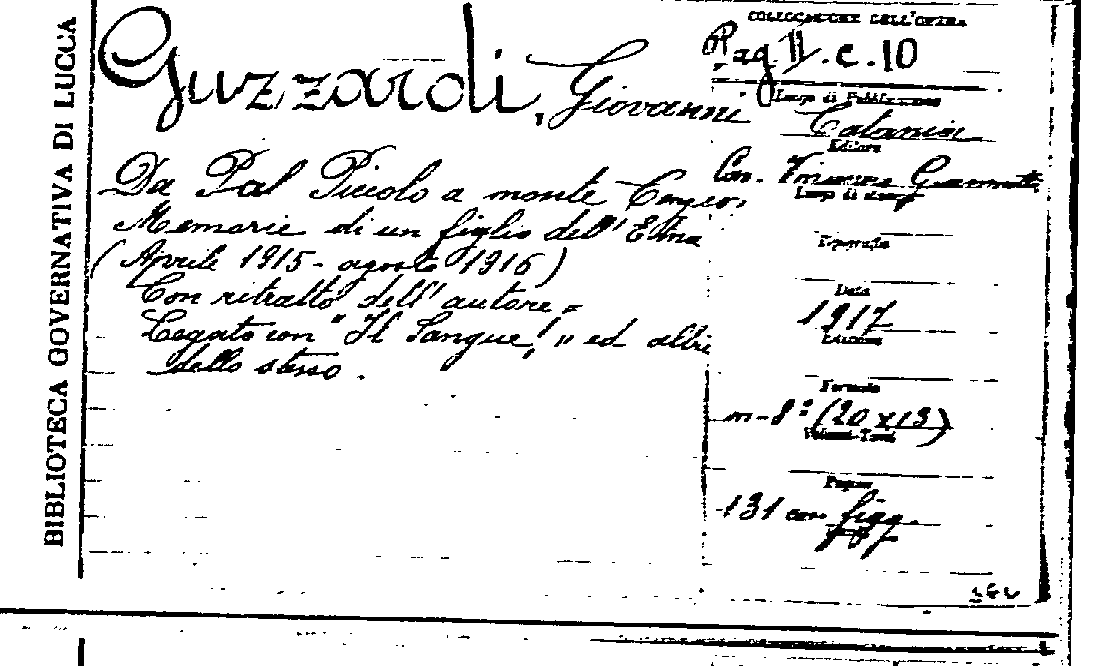 BIBLIOTECA GOVERNATIVA DI LUCCA
Guzzardi, Giovanni
Da Pal Piccolo a monte
Memorie di un figlio dell'Etna
(Aprile 1915 - agosto 1916)
Con ritratto dell'autore =
Legato con "Il Sangue!" ed altri
dello stesso.
COLLOCAZIONE DELL'OPERA
Pag II. c. 10
Luogo di Pubblicazione
Catania
Editore
Cav. Giannotta
Luogo di stampa
Tipografia
Data
1917
Edizione
Formato
in-8º (20 x 13)
Volumi-Tomi
Pagine
131 con figg.